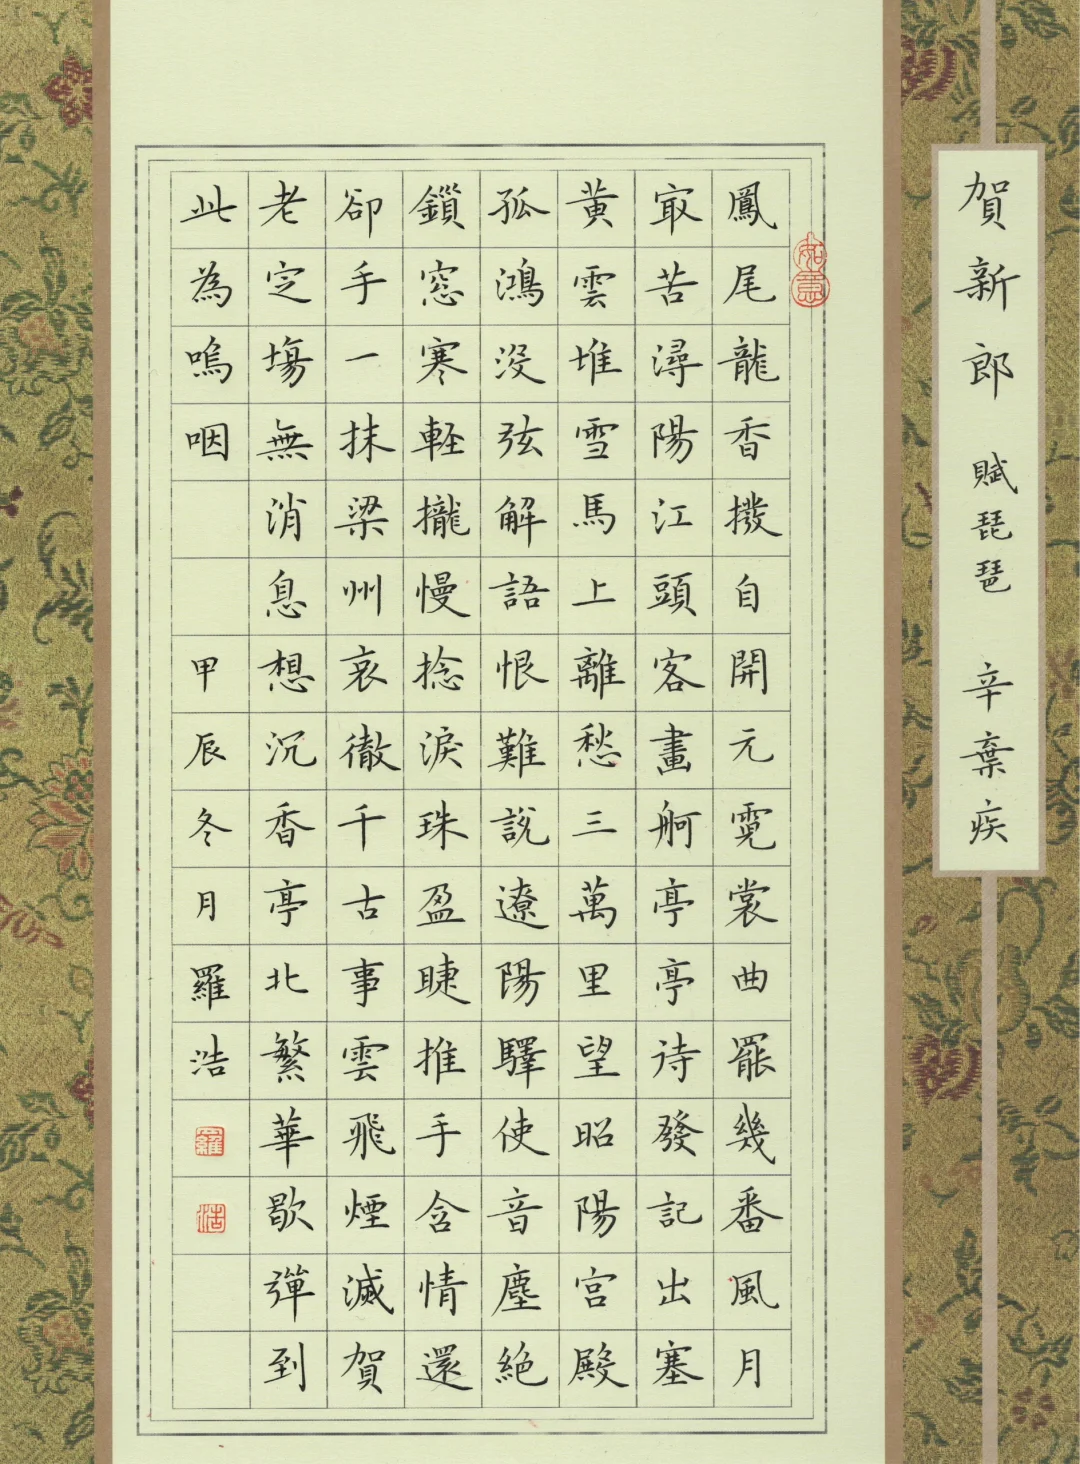 賀新郎 賦琵琶 辛棄疾
如意
鳳尾龍香撥自開元霓裳曲罷幾番風月
㝡苦潯陽江頭客畫舸亭亭待發記出塞
黃雲堆雪馬上離愁三萬里望昭陽宮殿
孤鴻沒弦解語恨難說遼陽驛使音塵絕
鎖窓寒輕攏慢捻淚珠盈睫推手含情還
卻手一抹梁州哀徹千古事雲飛煙滅賀
老定場無消息想沉香亭北繁華歇彈到
此為嗚咽 甲辰冬月羅浩
羅
浩